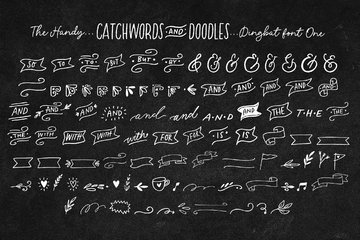 The Handy... CATCHWORDS AND DOODLES ...Dingbat font One
SO TO TO BUT BUT BY BY & & & & & &
AND AND AND AND and and AND AND AND THE THE
THE WITH WITH WITH with FOR FOR IS IS